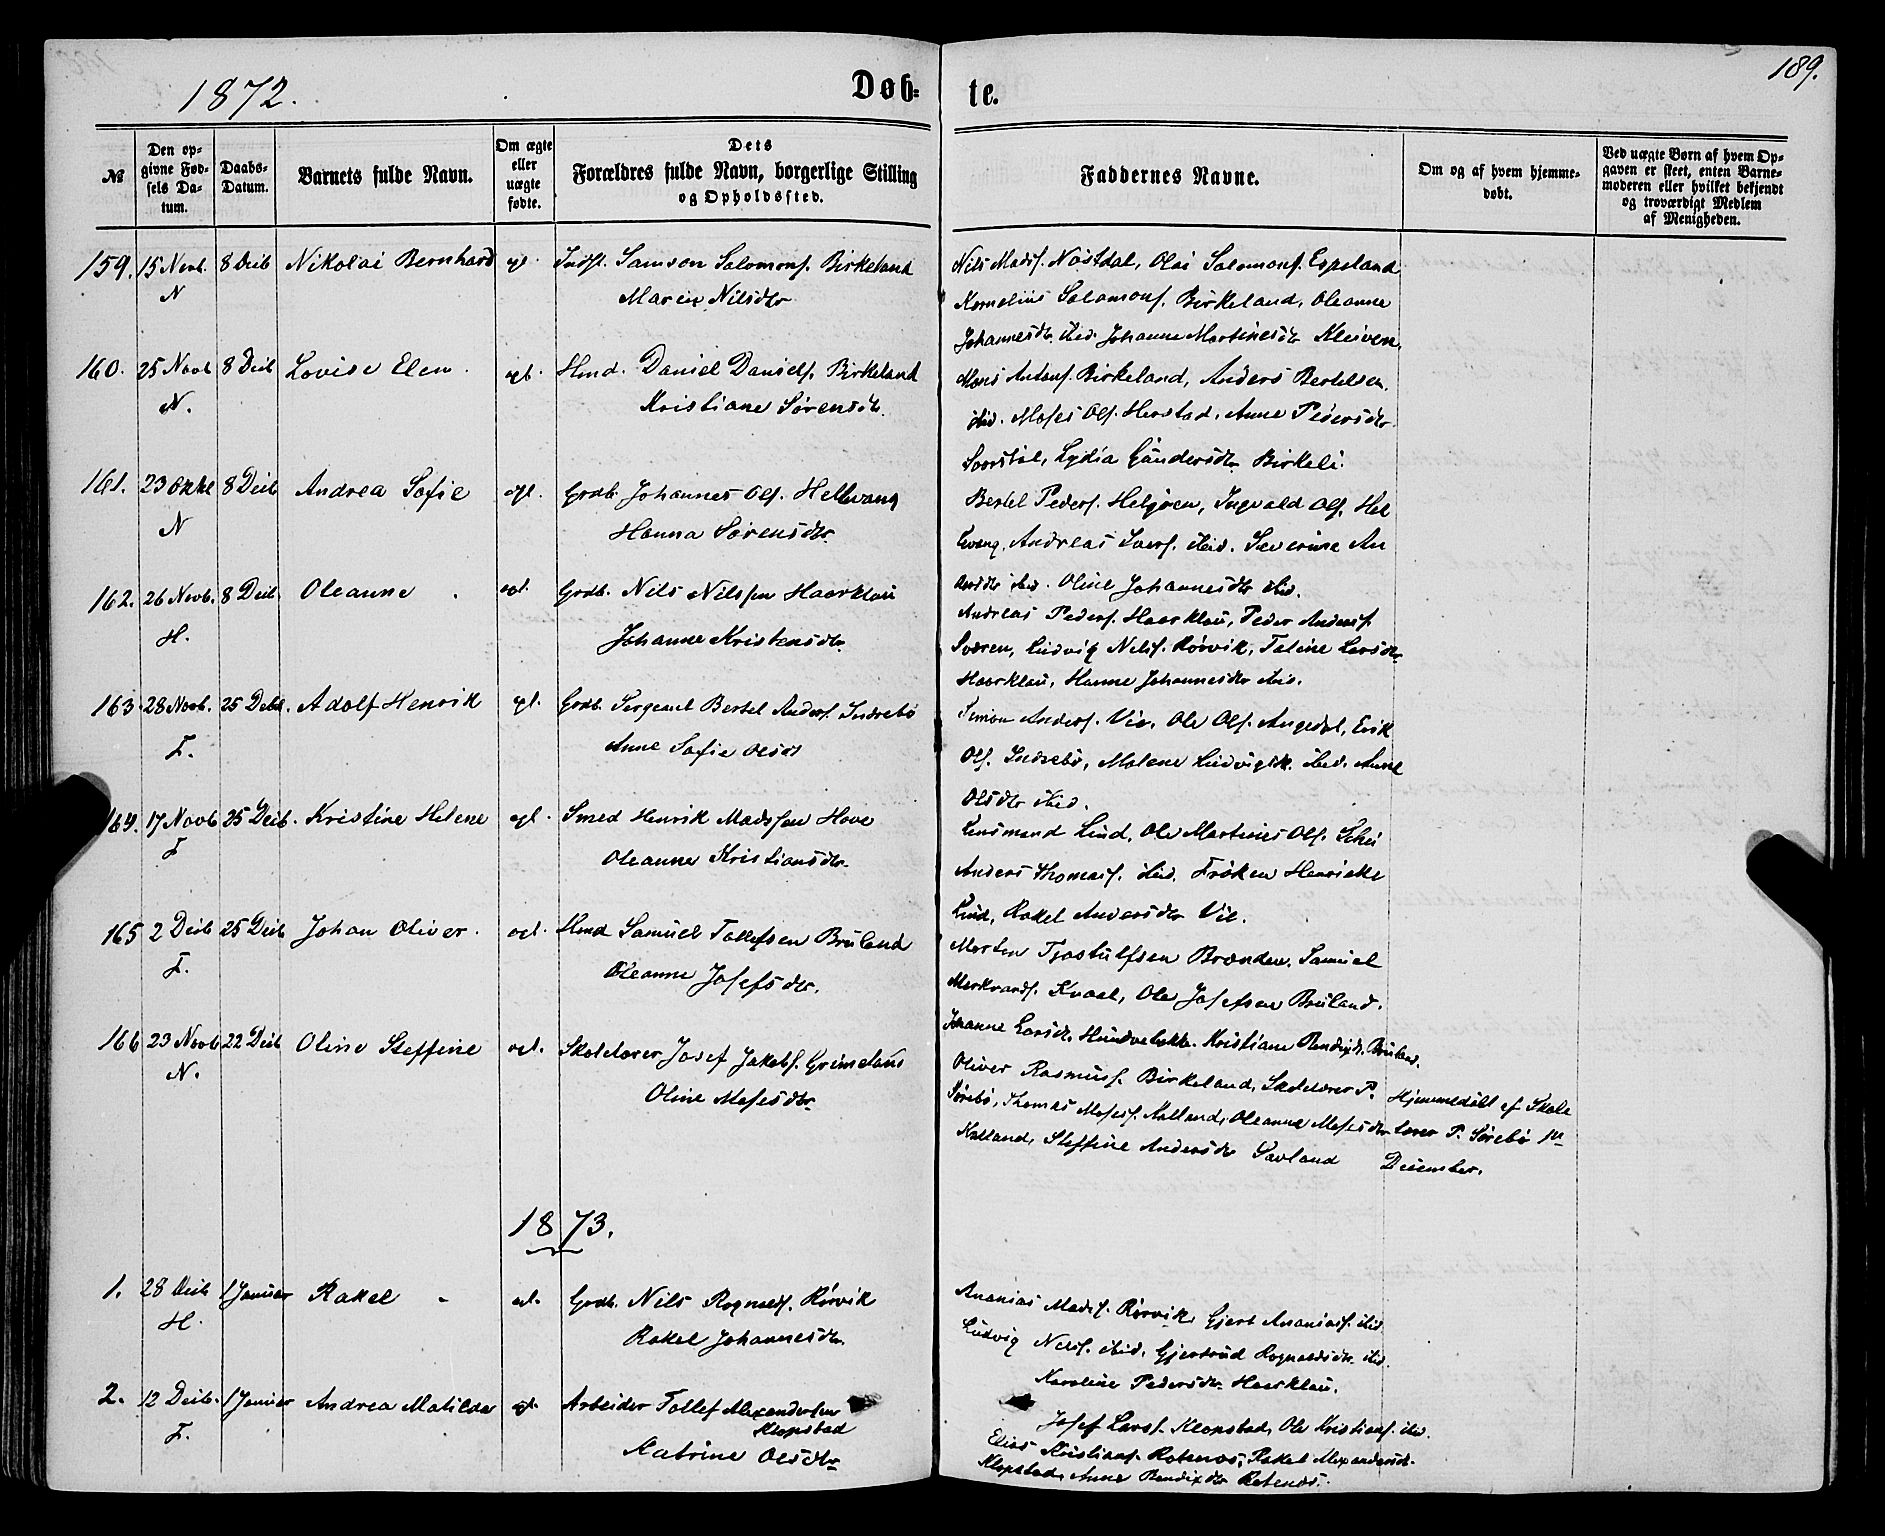 1872.
Døb-
te.
189.
№
Den op-
givne Fød-
sels Da-
tum.
Daabs-
Datum.
Barnets fulde Navn.
Om ægte
eller
uægte
fødte.
Dets
Forældres fulde Navn, borgerlige Stilling
og Opholdssted.
Faddernes Navne.
Om og af hvem hjemme-
døbt.
Ved uægte Børn af hvem Op-
gaven er skeet, enten Barne-
moderen eller hvilket bekjendt
og troværdigt Medlem
af Menigheden.
159. 15 Novb. 8 Decb Nikolai Bernhard Samson Salomons. Birkeland
N Nilsdtr
Nils Mads. Nøstdal, Olai Salomons. Espeland
Kornelius Salomons. Birkeland, Oleanne
Johannesdtr. ibid. Johanne Martinesdtr Kleiven
160. 25 Novb 8 Decb Lovise Elen ægt. Hmd. Daniel Daniels. Birkeland
N. Kristiane Sørensdtr.
Mons Antons. Birkeland, Anders Bertelsen
ibid. Moses Ols. Herstad, Anne Pedersdtr
Lydia Gundersdtr Birkeli.
161. 23 Okbr 8 Decb Andrea Sofie ægt. Grdb. Johannes Ols. Hellevang
N Hanna Sørensdtr.
Bertel Peders. Helgøen, Ingvald Ols. Hel
levang, Andreas Ivers. ibid. Severine An
dersdtr ibid. Oline Johannesdtr ibid.
162. 26 Novb. 8 Decb. Oleanne ægt. Grdb. Nils Nilssen Haarklau
H. Johanne Kristensdtr.
Andreas Peders. Haarklau, Peder Anders.
Sværen, Ludvig Nels. Rørvik, Taline Larsdtr
Haarklau, Hanne Johannesdtr ibid.
163. 28 Novb. 25 Decb. Adolf Henrik ægt. Grdb. Sergeant Bertel Anders. Indrebø
F. Anne Sofie Olsdt
Simon Anders. Vie, Ole Ols. Angedal, Erik
Ols. Indrebø, Malene Ludvigsdtr. ibid. Anne
Olsdtr ibid.
164. 17 Novb 25 Decb. Kristine Helene ægt. Smed Henrik Madssen Hove
F Oleanne Kristiansdtr.
Lensmand Lund, Ole Martinus Ols.
Anders Thomas. ibid. Frøken Henrikke
Lund, Rakel Andersdtr Vie.
165 2 Decb 25 Decb Johan Oliver. ægt. Hmd Samuel Tollefsen Bruland
F. Oleanne Josefsdtr.
Morten Tjostulfsen Brænden, Samuel
Markvards. Kvaal, Ole Josefsen Bruland.
Johanne Larsdtr. Kristiane Bendixdtr. Bruland.
166 23 Novb 22 Decb Oline Steffine ægt. Skolelærer Josef Jakobs. Grimeland
N. Oline Mosesdtr.
Oliver Rasmus. Birkeland, Skolelærer P.
Sørebø, Thomas Moses. Kalland, Oleanne Mosesdtr
Kalland, Steffine Andersdtr Savland
Hjemmedøbt af Skole
lærer P. Sørebø 1ste
December.
1873.
1. 28 Decb 1 Januar Rakel ægt. Grdb. Nils Rognalds. Rørvik
H. Rakel Johannesdtr.
Ananias Mads. Rørvik, Gjert Ananias. ibid.
Ludvig Nels. ibid, Gjertrud Rognaldsdtr ibid.
Karoline Pedersdtr. Haarklau.
2. 12 Decb. 1 Januar Andrea Matilde ægt. Arbeider Tollef Alexandersen
Klopstad
F. Katrine Olsdtr
Josef Lars. Klopstad, Ole Kristians. ibid.
Elias Kristians. Rotenæs, Rakel Alexandersdt.
Klopstad, Anne Bendixdtr Rotenæs.